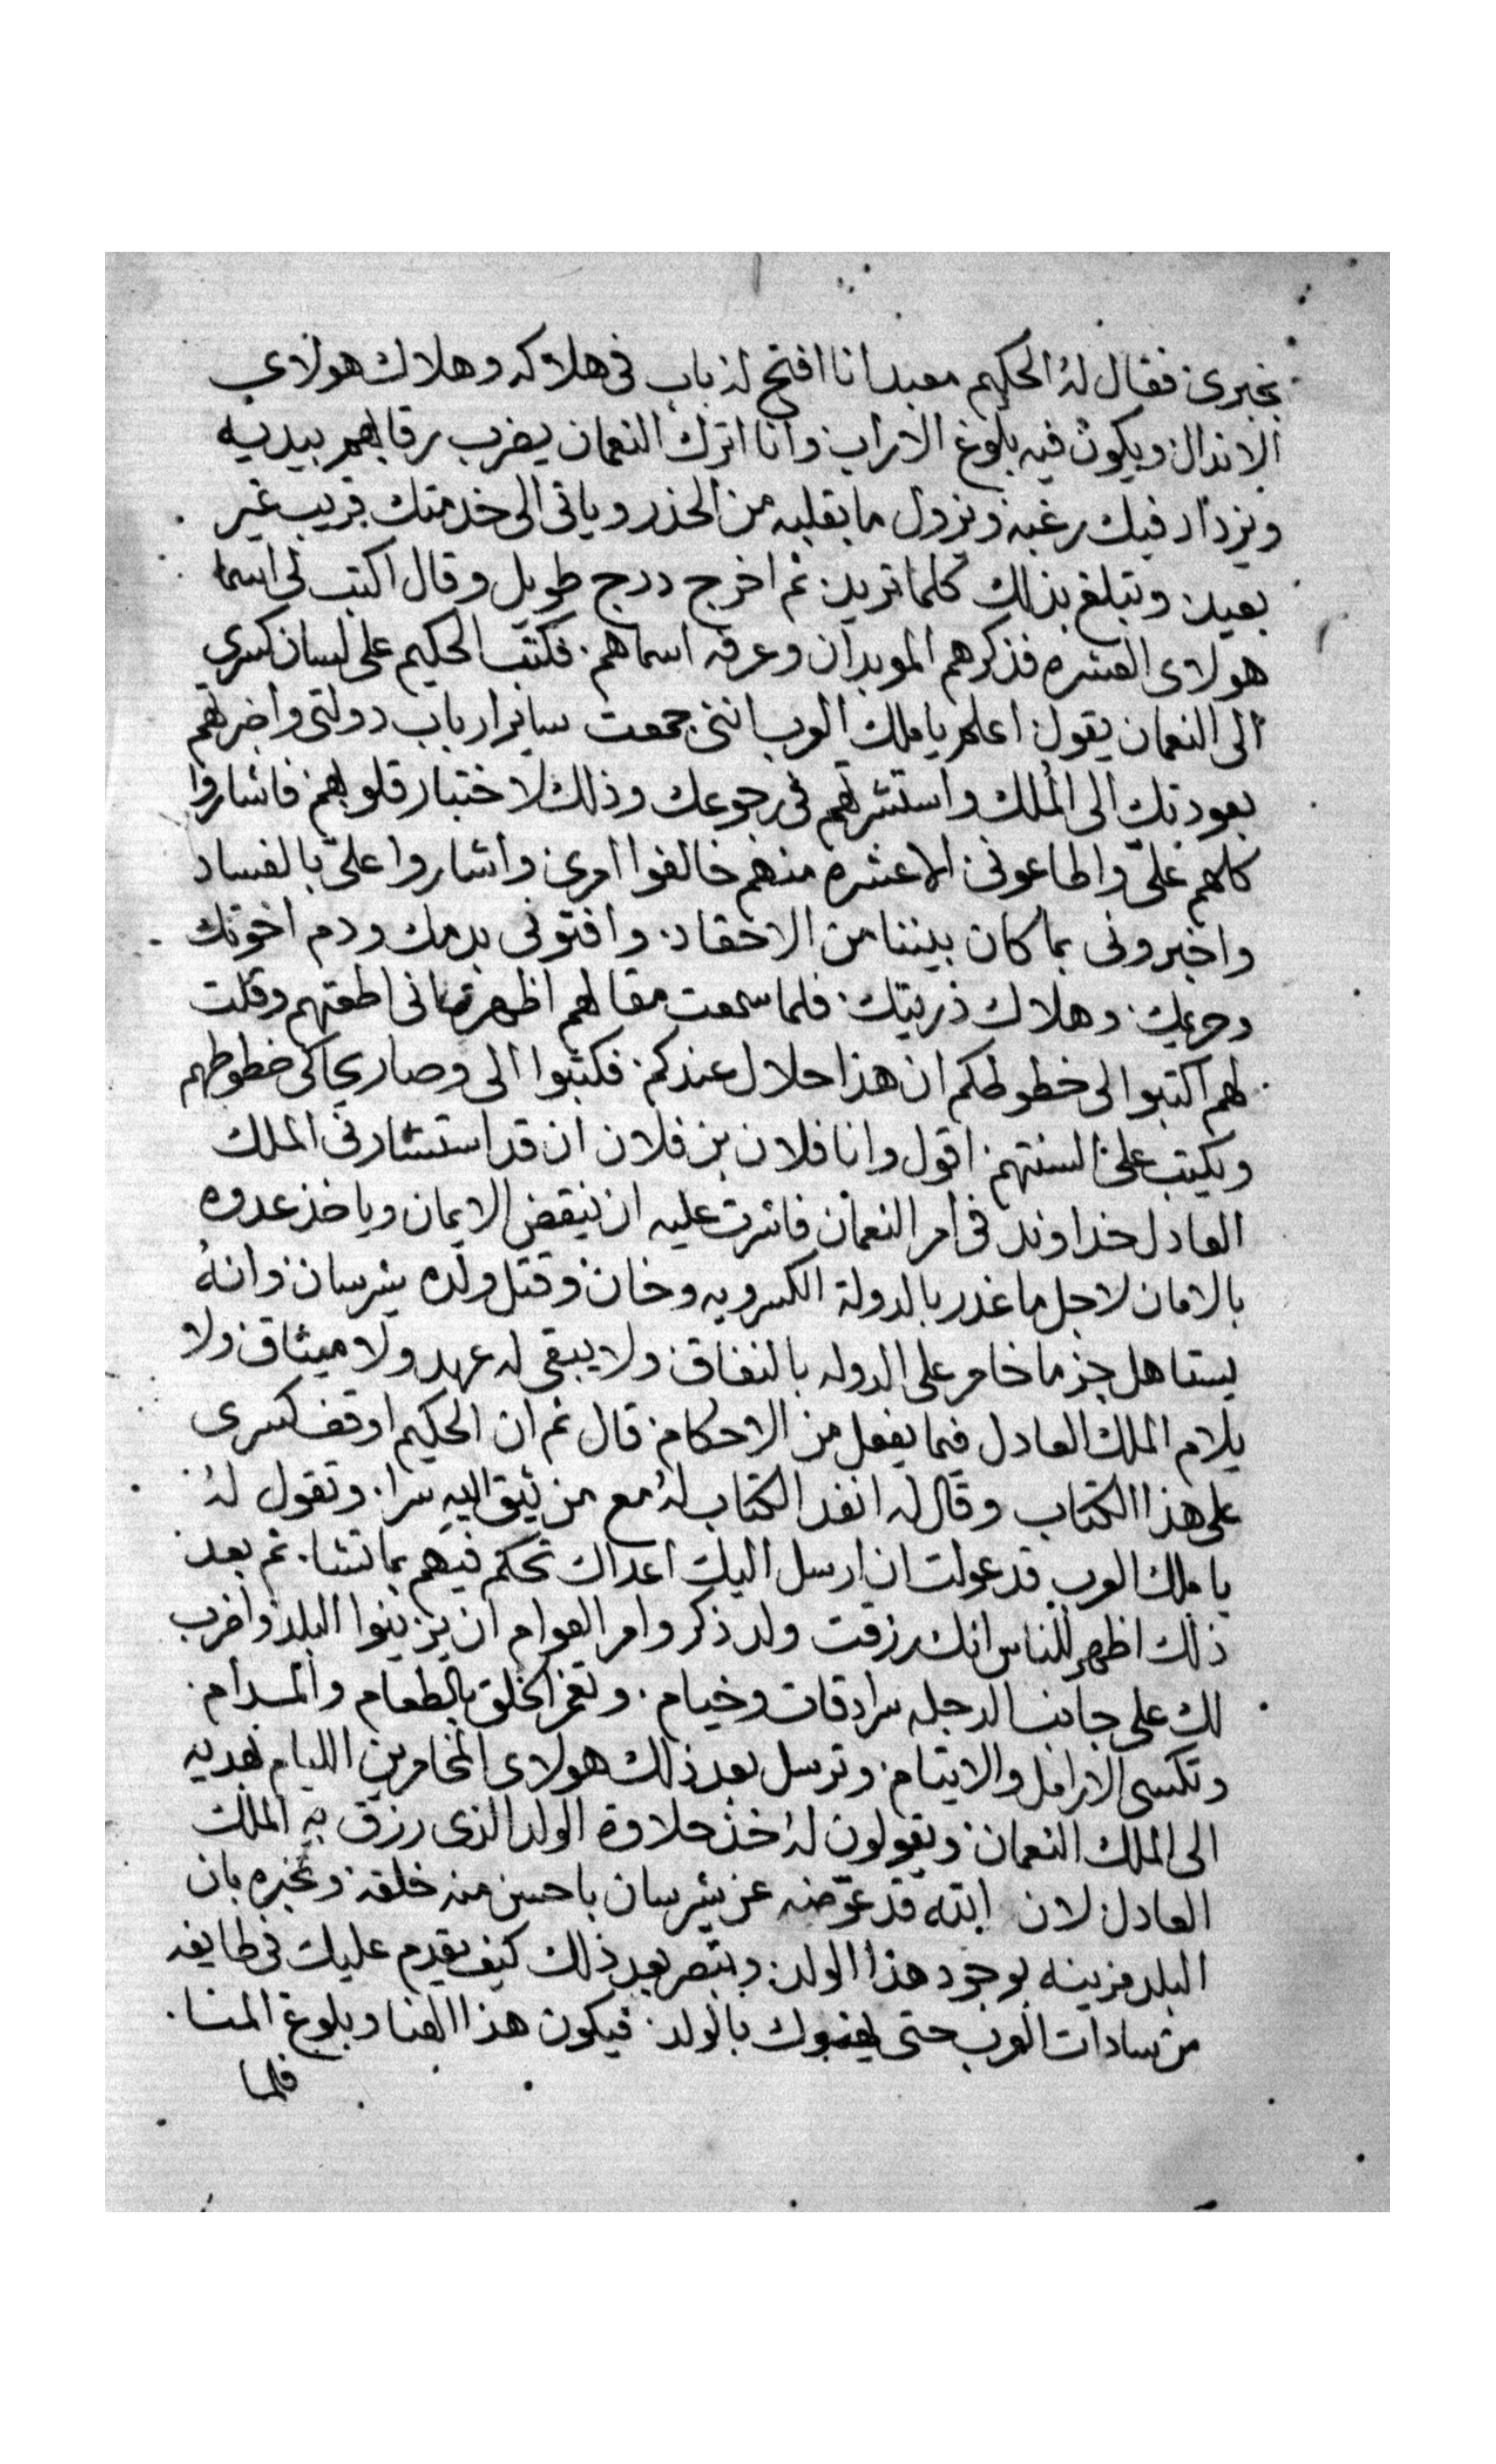 بخبرى فقال له الحكيم معبد انا افتح لك باب فى هلاكه وهلاك هولاى
الاندال ويكون فيه بلوغ الاراب وانا اترك النعمان يضرب رقابهم بيديه
ويزداد فيك رغبه ويزول ما بقلبه من الحذر وياتى الى خدمتك قريب غير
بعيد وتبلغ بذلك كلما تريد ثم اخرج درج طويل وقال اكتب لى اسما
هولاى العشره فذكرهم الموبدان وعرفه اسماهم فكتب الحكيم على لسان كسرى
الى النعمان يقول اعلم يا ملك العرب اننى جمعت ساير ارباب دولتى واخبرتهم
بعودتك الى الملك واستشرتهم فى رجوعك وذلك لاختبار قلوبهم فاشاروا
كلهم علىّ واطاعونى الا عشره منهم خالفوا امرى واشاروا علىّ بالفساد
واخبرونى بما كان بيننا من الاحقاد وافتونى بدمك ودم اخوتك
وحريمك وهلاك ذريتك فلما سمعت مقالهم اظهرت انى اطعتهم وقلت
لهم اكتبوا لى خطوطكم ان هذا حلال عندكم فكتبوا الى وصار يحاكى خطوطهم
ويكتب على السنتهم اقول وانا فلان بن فلان ان قد استشارنى الملك
العادل خداوند فى امر النعمان فاشرت عليه ان ينقض الايمان وياخذ عدوه
بالامان لاجل ما غدر بالدولة الكسرويه وخان وقتل ولده شرسان وانهُ
يستاهل جزما خامر على الدوله بالنفاق ولا يبقى له عهد ولا ميثاق ولا
يلام الملك العادل فيما يفعل من الاحكام قال ثم ان الحكيم اوقف كسرى
على هذا الكتاب وقال له انفد الكتاب لهُ مع من يثق اليه سرا وتقول لهُ
يا ملك العرب قد عولت ان ارسل اليك اعداك تحكم فيهم بما تشا ثم بعد
ذلك اظهر للناس انك رزقت ولد ذكر وامر العوام ان يزينوا البلد واضرب
لك على جانب الدجله سرادقات وخيام وتغمر الخلق بالطعام والمدام
وتكسى الارامل والايتام وترسل بعد ذلك هولاى المخامرين الليام بهديه
الى الملك النعمان ويقولون لهُ خذ حلاوة الولد الذى رزق به الملك
العادل لان الله قد عوّضه عن شرسان باحسن منه خلقه وتخبره بان
البلد مزينه بوجود هذا الولد وتبصر بعد ذلك كيف يقدم عليك فى طايفه
من سادات العرب حتى يهنوك بالولد فيكون هذا الهنا وبلوغ المنا
فلما